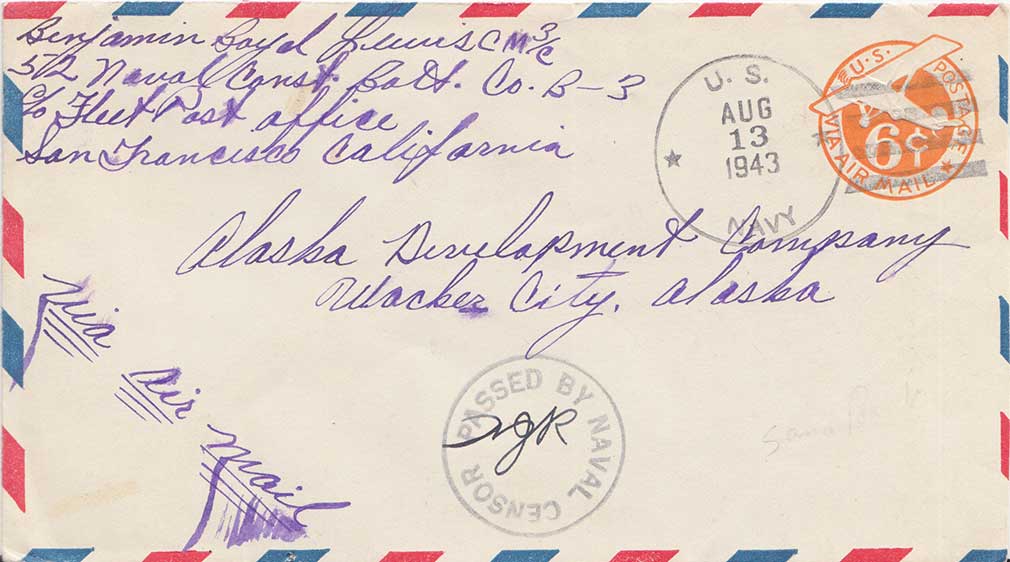 Benjamin Boyd Lewis CM 3/c
512 Naval Const. Batt. Co. B-3
c/o Fleet Post office
San Francisco California
U. S.
AUG
13
1943
NAVY
U.S. POSTAGE
6¢
VIA AIR MAIL
Alaska Development Company
Wacker City, Alaska
Via
air
mail
PASSED BY NAVAL CENSOR